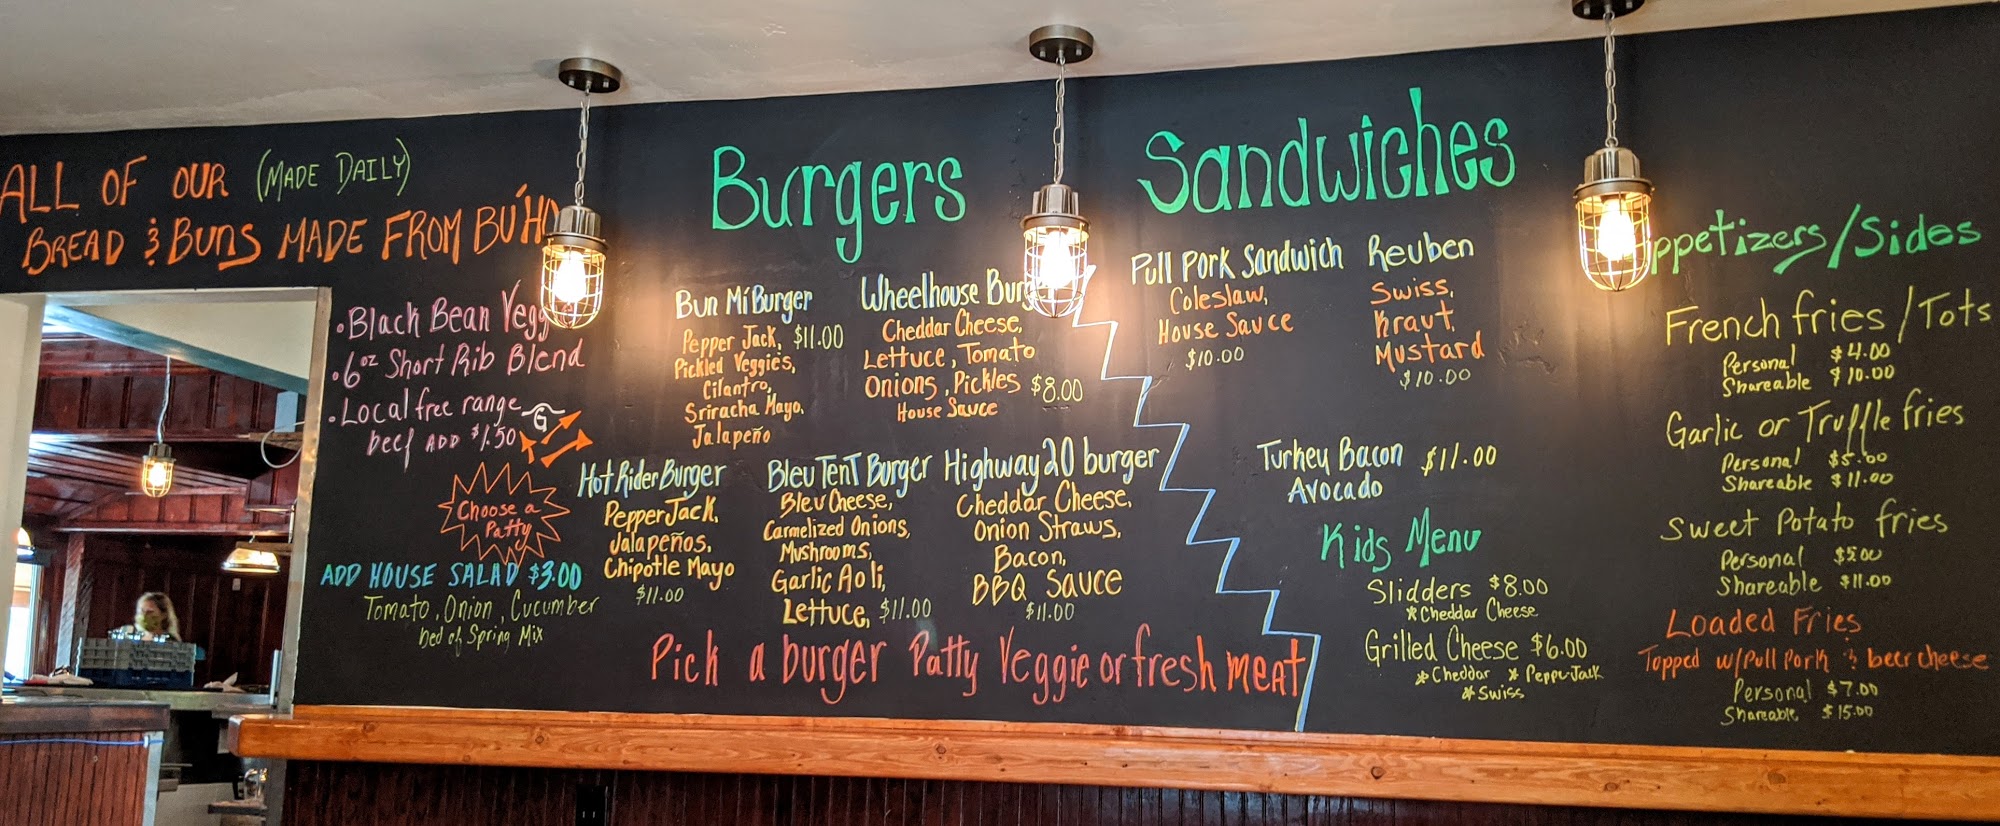 ALL OF OUR (MADE DAILY)
BREAD & BUNS MADE FROM
• Black Bean
• 6oz Short Rib Blend
• Local free range
beef ADD $1.50
G
Choose a
Patty
ADD HOUSE SALAD $3.00
Tomato, Onion, Cucumber
bed of Spring Mix
Burgers
Bun Mí Burger
Pepper Jack, $11.00
Pickled Veggies,
Cilantro,
Sriracha Mayo,
Jalapeño
Wheelhouse
Cheddar Cheese,
Lettuce, Tomato
Onions, Pickles $8.00
House Sauce
Hot Rider Burger
Pepper Jack,
Jalapeños,
Chipotle Mayo
$11.00
Bleu Tent Burger
Bleu Cheese,
Carmelized Onions,
Mushrooms,
Garlic Aoli,
Lettuce, $11.00
Highway 20 burger
Cheddar Cheese,
Onion Straws,
Bacon,
BBQ Sauce
$11.00
Pick a burger Patty Veggie or fresh meat
Sandwiches
Pull Pork Sandwich
Coleslaw,
House Sauce
$10.00
Reuben
Swiss,
Kraut,
Mustard
$10.00
Turkey Bacon $11.00
Avocado
Kids Menu
Slidders $8.00
* Cheddar Cheese
Grilled Cheese $6.00
* Cheddar * Pepper Jack
* Swiss
Appetizers/Sides
French fries / Tots
Personal $4.00
Shareable $10.00
Garlic or Truffle fries
Personal $5.00
Shareable $11.00
Sweet Potato fries
Personal $5.00
Shareable $11.00
Loaded Fries
Topped w/ Pull Pork & beer cheese
Personal $7.00
Shareable $15.00